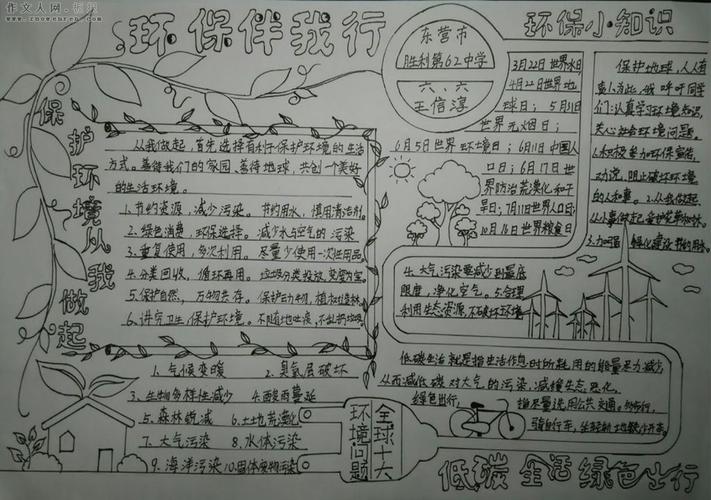 作文人网
www.zuowenren.com
环保伴我行
东营市
胜利第62中学
六、六
王信淳
环保小知识
保护环境从我做起
从我做起,首先选择有利于保护环境的生活
方式。善待我们的家园、善待地球,共创一个美好
的生活环境。
1.节约资源,减少污染。节约用水,慎用清洁剂。
2.绿色消费,环保选择。减少水与空气的污染
3.重复使用,多次利用。尽量少使用一次性用品。
4.分类回收,循环再用。垃圾分类投放,变废为宝。
5.保护自然,万物共存。保护动物,植树造林。
6.讲究卫生 保护环境。不随地吐痰、不乱扔垃圾。
3月22日世界水日
4月22日世界地
球日;5月31日
世界无烟日;
6月5日世界环境日;6月11日中国人
口日;6月17日世
界防治荒漠化和干
旱日;7月11日世界人口日;
10月16日世界粮食日
保护地球,人人有
责。为此,我呼吁同学
们:认真学习环境知识,
关心社会环境问题。
1.积极参加环保宣传,
劝说、阻止破坏环境
的人和事。2.从我做起,
从小事做起爱护花草树木。
3.加强 绿化建设 节约用水。
4.大气污染要减少到最底
限度,净化空气。5.合理
利用生态资源,不破坏环境
低碳生活就是指生活作息时所耗用的能量尽力减少
从而减低碳 对大气的污染,减缓生态恶化,
绿色出行, 指尽量选用公共交通、
骑自行车,
1.气候变暖 2.臭氧层破坏
3.生物多样性减少 4.酸雨蔓延
5.森林锐减 6.土地荒漠化
7.大气污染 8.水体污染
9.海洋污染 10.固体废物污染
全球十大
环境问题
低碳生活 绿色出行